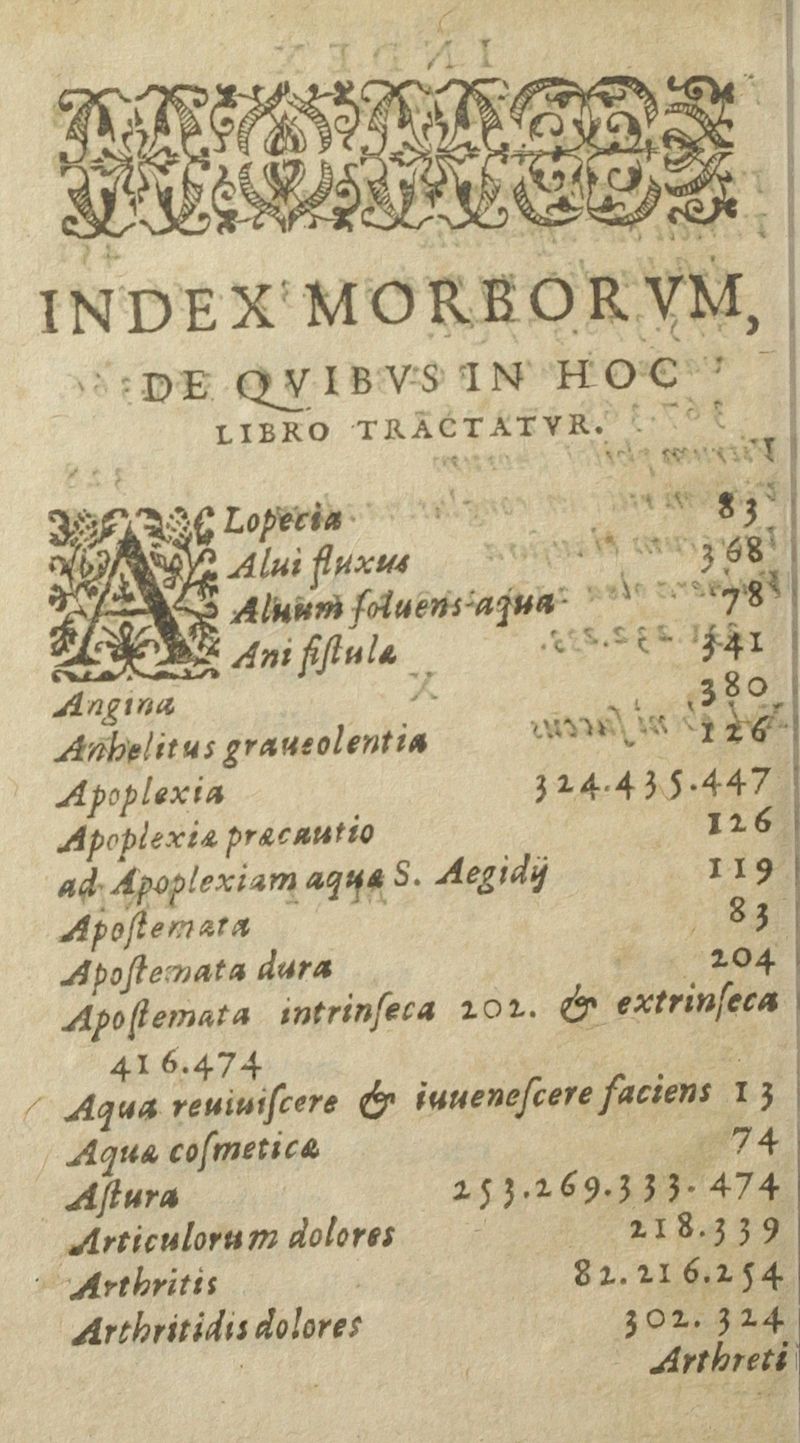 INDEX MORBORVM,
DE QVIBVS IN HOC
LIBRO TRACTATVR.
ALopecia 83
Alui fluxus 368
Aluum ſoluens aqua 78
Ani fiſtulæ 341
Angina 380
Anhelitus graueolentia 126
Apoplexia 324.435.447
Apoplexiæ præcautio 126
ad Apoplexiam aqua S. Aegidij 119
Apoſtemata 83
Apoſtemata dura 204
Apoſtemata intrinſeca 202. & extrinſeca
416.474
Aqua reuiuiſcere & iuueneſcere faciens 13
Aquæ coſmeticæ 74
Aſtura 253.269.333.474
Articulorum dolores 218.339
Arthritis 82.216.254
Arthritidis dolores 302.324
Arthreti